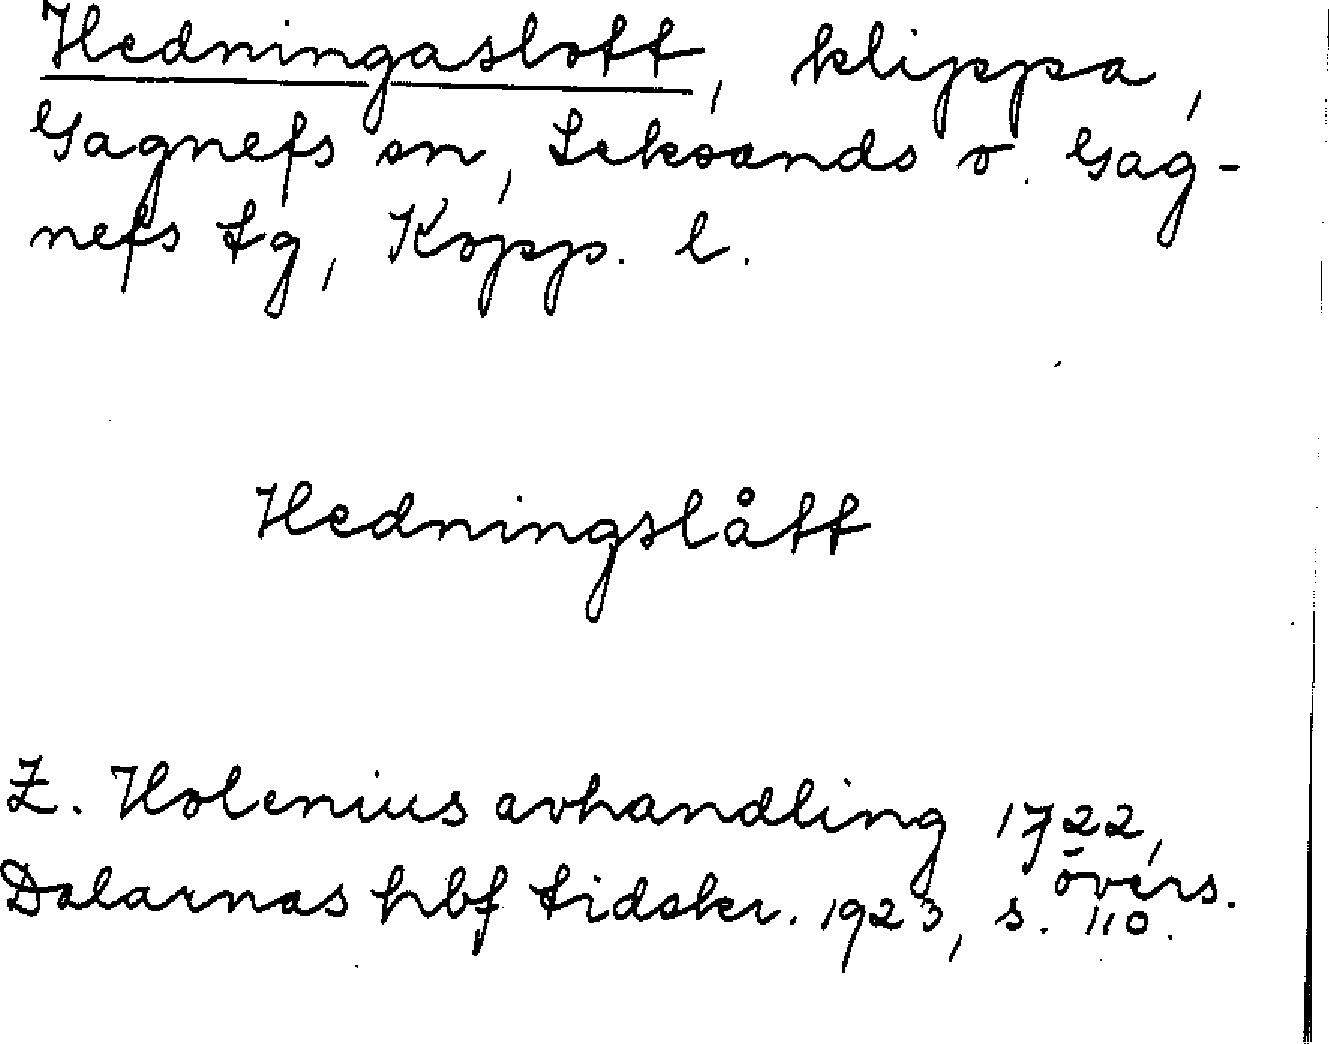 Hedningaslott, klippa,
Gagnefs sn, Leksands o. Gag-
nefs tg, Kopp. l.
Hedningslått
Z. Holenius avhandling 1722,
övers.
Dalarnas hbf tidskr. 1923, s. 110.